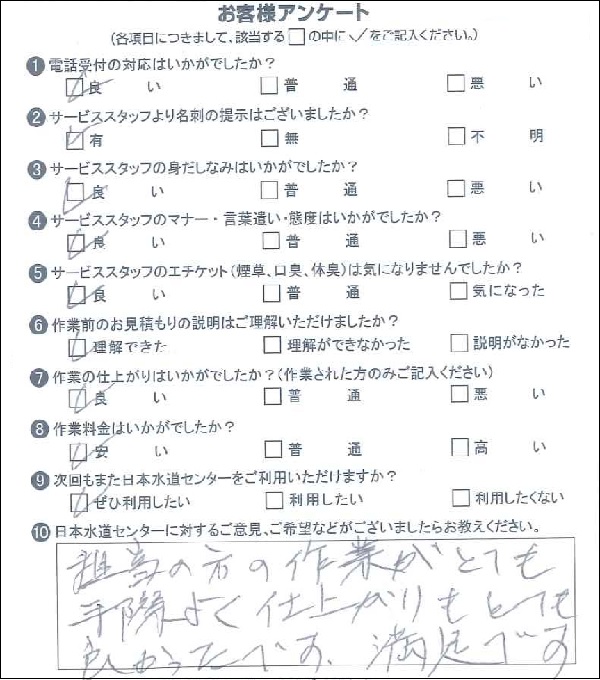 お客様アンケート
(各項目につきまして、該当する□の中に✓をご記入ください。)
❶ 電話受付の対応はいかがでしたか?
☑良い □普通 □悪い
❷ サービススタッフより名刺の提示はございましたか?
☑有 □無 □不明
❸ サービススタッフの身だしなみはいかがでしたか?
☑良い □普通 □悪い
❹ サービススタッフのマナー・言葉遣い・態度はいかがでしたか?
☑良い □普通 □悪い
❺ サービススタッフのエチケット(煙草、口臭、体臭)は気になりませんでしたか?
☑良い □普通 □気になった
❻ 作業前のお見積もりの説明はご理解いただけましたか?
☑理解できた □理解ができなかった □説明がなかった
❼ 作業の仕上がりはいかがでしたか?(作業された方のみご記入ください)
☑良い □普通 □悪い
❽ 作業料金はいかがでしたか?
☑安い □普通 □高い
❾ 次回もまた日本水道センターをご利用いただけますか?
☑ぜひ利用したい □利用したい □利用したくない
❿ 日本水道センターに対するご意見、ご希望などがございましたらお教えください。
担当の方の作業がとても
手際よく仕上がりもとても
良かったです、満足です